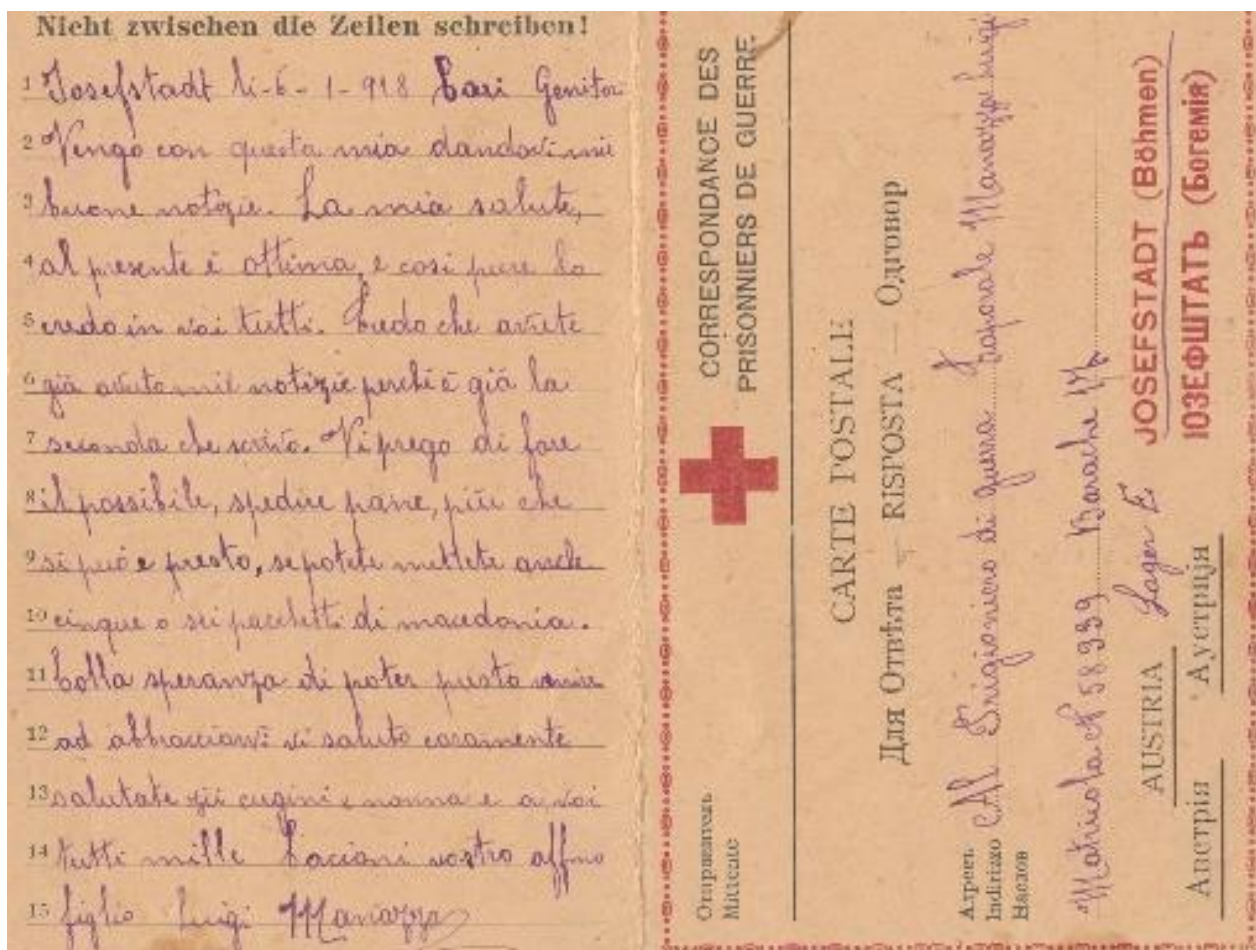 Nicht zwischen die Zeilen schreiben!
1 Josefstadt li-6-1-918 Cari Genitor
2 Vengo con questa mia dandovi mie
3 buone notizie. La mia salute,
4 al presente è ottima, e così pure lo
5 credo in voi tutti. Credo che avrete
6 già avuto mie notizie perchè è già la
7 seconda che scrivo. Vi prego di fare
8 il possibile, spedire pane, più che
9 si può e presto, se potete mettete anche
10 cinque o sei pacchetti di macedonia.
11 Colla speranza di poter presto venire
12 ad abbracciarvi vi saluto caramente
13 salutate zii cugini e nonna e a voi
14 tutti mille bacioni vostro affmo
15 figlio Luigi Manazza
CORRESPONDANCE DES
PRISONNIERS DE GUERRE.
CARTE POSTALE
Для Отвѣта — RISPOSTA — Одговор
Отправитель
Mittente
Адресъ
Indirizzo
Наслов
Al Prigioniero di guerra Caporale Manazza Luigi
Matricola N 58939 Barache
Lager E
JOSEFSTADT (Böhmen)
ІОЗЕФШТАТЪ (Богемія)
AUSTRIA
Австрія Аустрија